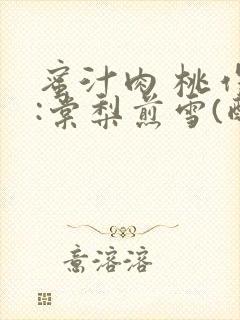 蜜汁肉桃作
:棠梨煎雪(
意溶溶